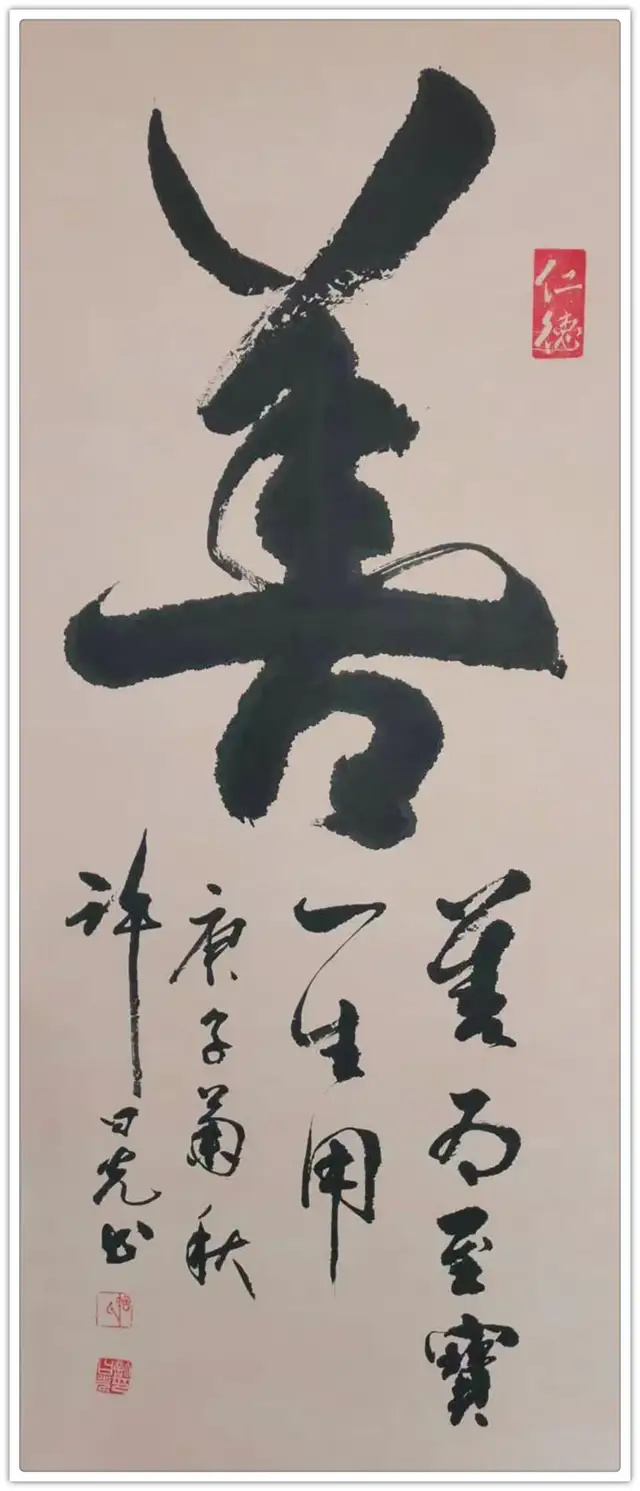 仁德
善
善为至寶
一生用
庚子菊秋
许日光书